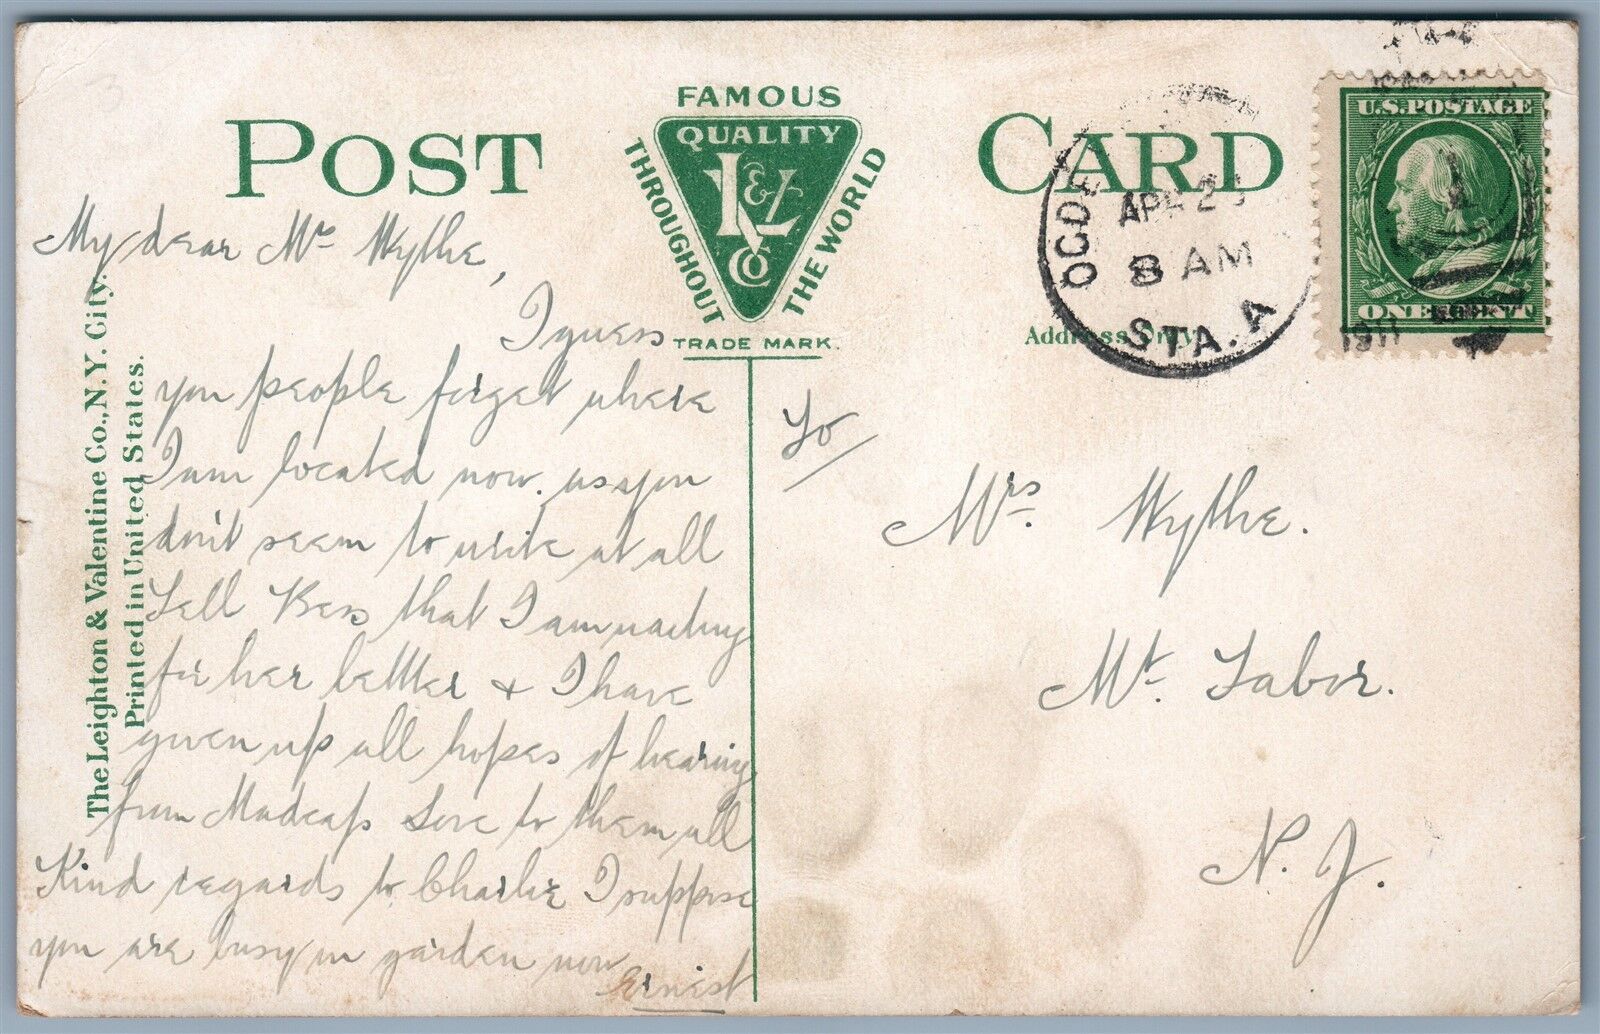 POST CARD
FAMOUS
QUALITY
L&V CO
THROUGHOUT
THE WORLD
TRADE MARK.
Address Only
OGDE
APR 2
8 AM
STA. A
1911
U.S. POSTAGE
ONE CENT
The Leighton & Valentine Co., N.Y. City.
Printed in United States.
My dear Mrs Wythe,
I guess
you people forget where
I am located now. as you
don't seem to write at all
Tell Bess that I am waiting
for her letter & I have
given up all hopes of hearing
from Madcap Love to them all
Kind regards to Charlie I suppose
you are busy in garden now
Ernest
To
Mrs. Wythe.
Mt. Tabor.
N. J.